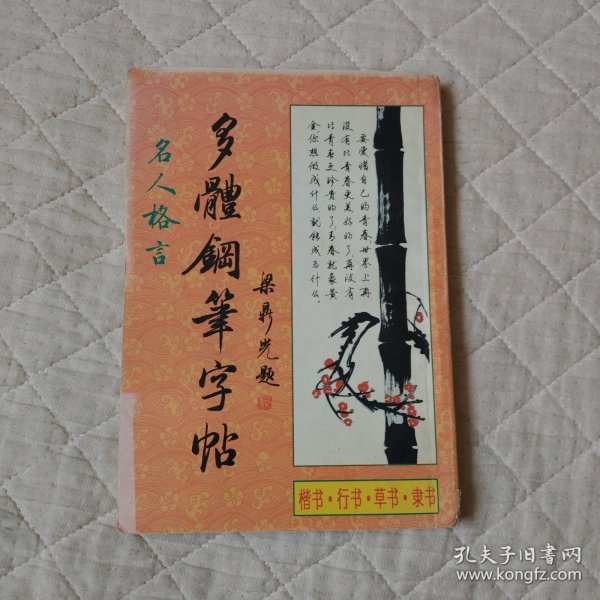 名人格言
多體鋼筆字帖
梁鼎光题
要爱惜自己的青春世界上再
没有比青春更美好的了再没有
比青春更珍贵的了青春就象黄
金你想做成什么就能成为什么。
楷书·行书·草书·隶书
孔夫子旧书网
www.kongfz.com